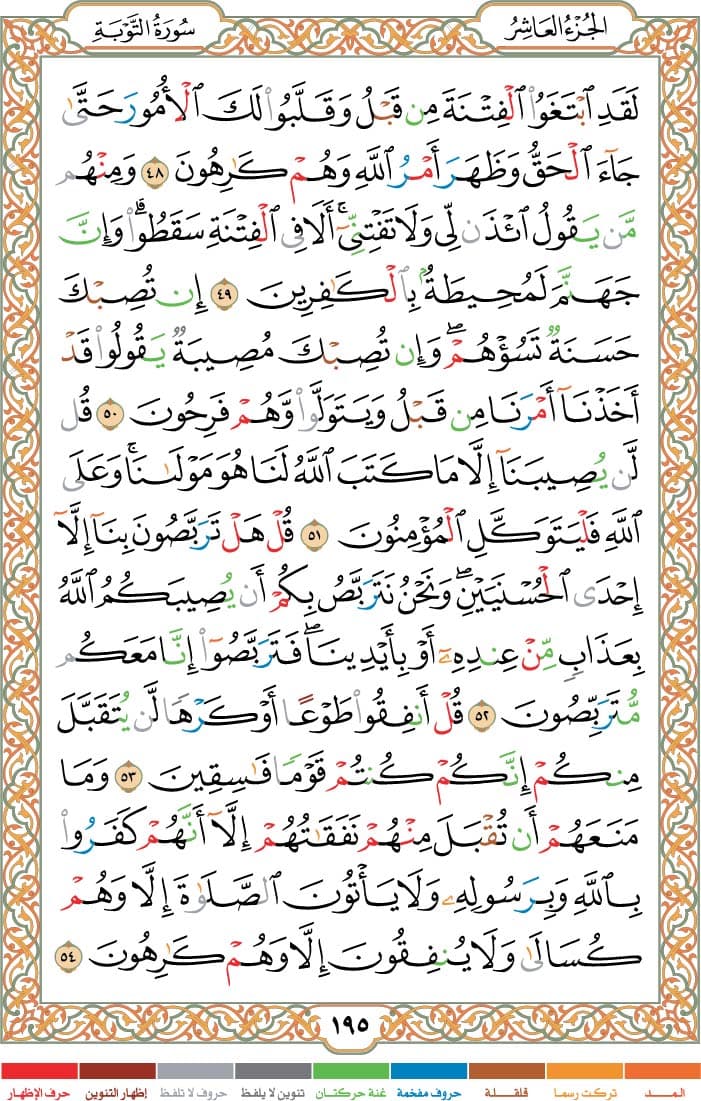 الجُزْءُ العَاشِرُ
سُورَةُ التَّوْبَةِ
لَقَدِ ٱبْتَغَوُا۟ ٱلْفِتْنَةَ مِن قَبْلُ وَقَلَّبُوا۟ لَكَ ٱلْأُمُورَ حَتَّىٰ
جَآءَ ٱلْحَقُّ وَظَهَرَ أَمْرُ ٱللَّهِ وَهُمْ كَٰرِهُونَ ٤٨ وَمِنْهُم
مَّن يَقُولُ ٱئْذَن لِّى وَلَا تَفْتِنِّىٓ ۚ أَلَا فِى ٱلْفِتْنَةِ سَقَطُوا۟ ۗ وَإِنَّ
جَهَنَّمَ لَمُحِيطَةٌۢ بِٱلْكَٰفِرِينَ ٤٩ إِن تُصِبْكَ
حَسَنَةٌ تَسُؤْهُمْ ۖ وَإِن تُصِبْكَ مُصِيبَةٌ يَقُولُوا۟ قَدْ
أَخَذْنَآ أَمْرَنَا مِن قَبْلُ وَيَتَوَلَّوا۟ وَّهُمْ فَرِحُونَ ٥٠ قُل
لَّن يُصِيبَنَآ إِلَّا مَا كَتَبَ ٱللَّهُ لَنَا هُوَ مَوْلَىٰنَا ۚ وَعَلَى
ٱللَّهِ فَلْيَتَوَكَّلِ ٱلْمُؤْمِنُونَ ٥١ قُلْ هَلْ تَرَبَّصُونَ بِنَآ إِلَّآ
إِحْدَى ٱلْحُسْنَيَيْنِ ۖ وَنَحْنُ نَتَرَبَّصُ بِكُمْ أَن يُصِيبَكُمُ ٱللَّهُ
بِعَذَابٍ مِّنْ عِندِهِۦٓ أَوْ بِأَيْدِينَا ۖ فَتَرَبَّصُوٓا۟ إِنَّا مَعَكُم
مُّتَرَبِّصُونَ ٥٢ قُلْ أَنفِقُوا۟ طَوْعًا أَوْ كَرْهًا لَّن يُتَقَبَّلَ
مِنكُمْ إِنَّكُمْ كُنتُمْ قَوْمًا فَٰسِقِينَ ٥٣ وَمَا
مَنَعَهُمْ أَن تُقْبَلَ مِنْهُمْ نَفَقَٰتُهُمْ إِلَّآ أَنَّهُمْ كَفَرُوا۟
بِٱللَّهِ وَبِرَسُولِهِۦ وَلَا يَأْتُونَ ٱلصَّلَوٰةَ إِلَّا وَهُمْ
كُسَالَىٰ وَلَا يُنفِقُونَ إِلَّا وَهُمْ كَٰرِهُونَ ٥٤
١٩٥
المــــد
تركت رسما
قلقـــلة
حروف مفخمة
غنة حركتــان
تنوين لا يلفظ
حروف لا تلفظ
إظهار التنوين
حرف الإظهار